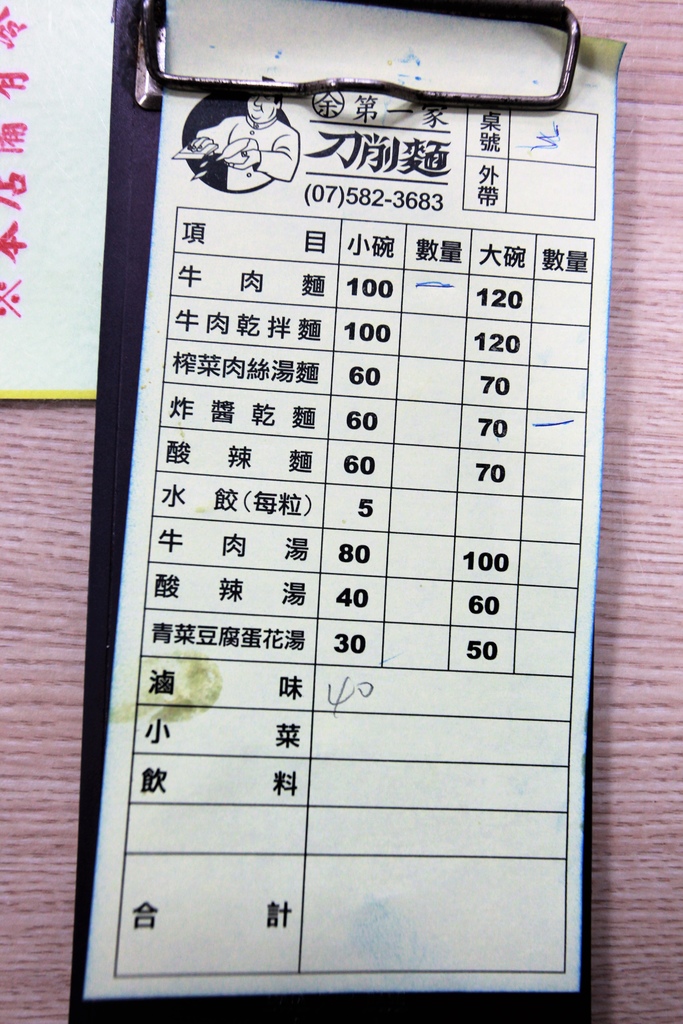 ※本店備有冷
余 第一家
刀削麵
(07)582-3683
桌號
外帶
項目 小碗 數量 大碗 數量
牛肉麵 100 一 120
牛肉乾拌麵 100 120
榨菜肉絲湯麵 60 70
炸醬乾麵 60 70 一
酸辣麵 60 70
水餃(每粒) 5
牛肉湯 80 100
酸辣湯 40 60
青菜豆腐蛋花湯 30 50
滷味 40
小菜
飲料
合計